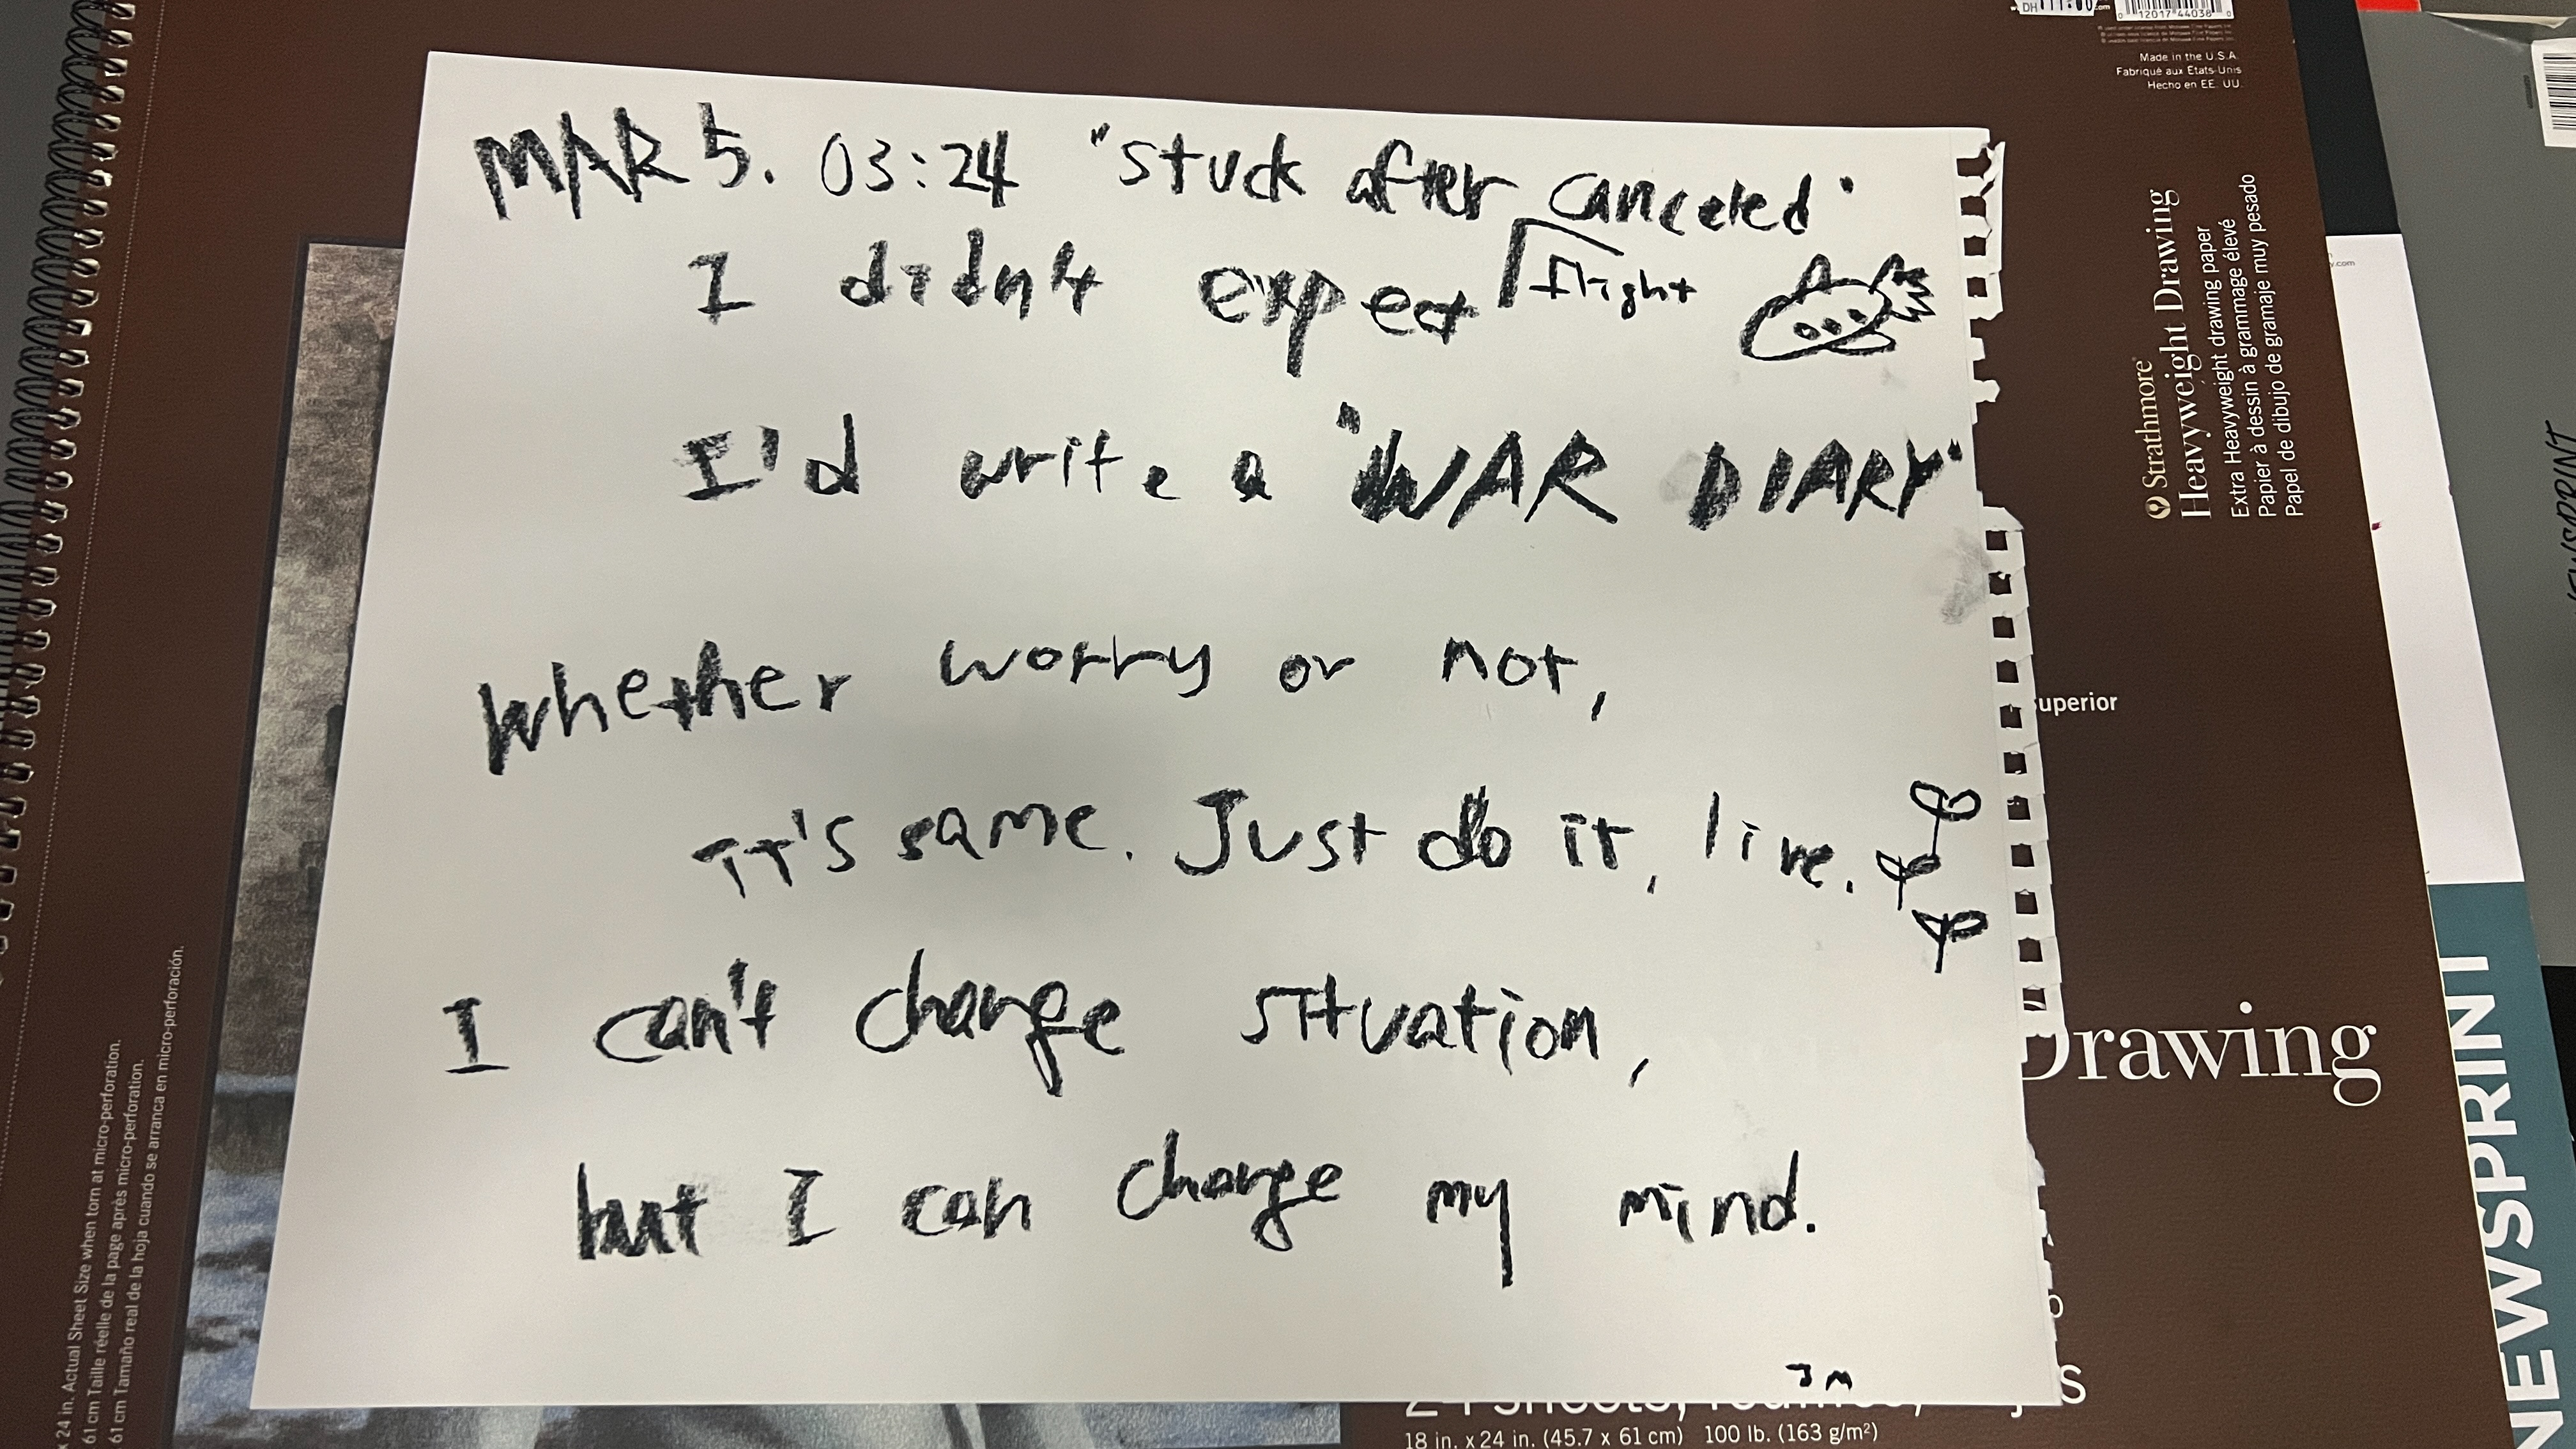 MAR 5. 03:24 "stuck after canceled"
flight
I didn't expect
I'd write a "WAR DIARY"
Whether worry or not,
It's same. Just do it, live.
I can't change situation,
but I can change my mind.
JM
12017 44038
Made in the U.S.A.
Fabriqué aux États-Unis
Hecho en EE. UU.
Strathmore
Heavyweight Drawing
Extra Heavyweight drawing paper
Papier à dessin à grammage élevé
Papel de dibujo de gramaje muy pesado
uperior
Drawing
NEWSPRINT
NEWSPRINT
18 in. x 24 in. (45.7 x 61 cm) 100 lb. (163 g/m²)
x 24 in. Actual Sheet Size when torn at micro-perforation.
61 cm Taille réelle de la page après micro-perforation.
61 cm Tamaño real de la hoja cuando se arranca en micro-perforación.